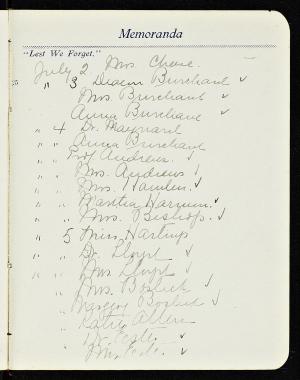 Memoranda
"Lest We Forget."
July 2 Mrs. Chase.
" 3 Deacon Burchard ✓
Mrs. Burchard ✓
Anna Burchard ✓
" 4 Dr. Maynard
" " Anna Burchard
" " Prof Andrews. ✓
" " Mrs. Andrews ✓
" " Mrs. Hamlin. ✓
" " Martha Harmon. ✓
" " Mrs. Bishop. ✓
" 5 Miss Hastings
" " Dr. Lloyd ✓
" " Mrs Lloyd ✓
" Mrs. Bostick ✓
" Margery Bostick ✓
" Katie Allen
" Dr. ✓
" Mrs. ✓